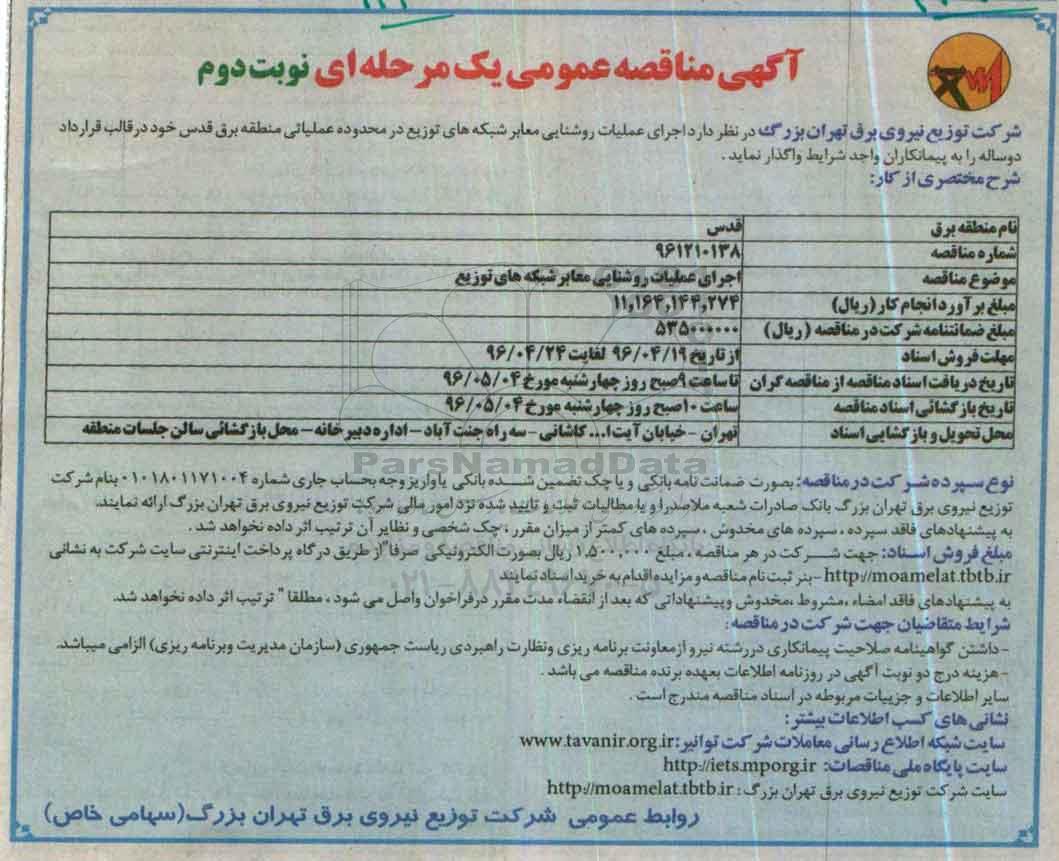 آگهی مناقصه عمومی یک مرحله ای نوبت دوم
شرکت توزیع نیروی برق تهران بزرگ در نظر دارد اجرای عملیات روشنایی معابر شبکه های توزیع در محدوده عملیاتی منطقه برق قدس خود در قالب قرارداد
دوساله را به پیمانکاران واجد شرایط واگذار نماید .
شرح مختصری از کار:
نام منطقه برق قدس
شماره مناقصه ۹۶۱۲۱۰۱۳۸
موضوع مناقصه اجرای عملیات روشنایی معابر شبکه های توزیع
مبلغ برآورد انجام کار (ریال) ۱۱,۱۶۴,۱۴۴,۲۷۴
مبلغ ضمانتنامه شرکت در مناقصه (ریال) ۵۳۵۰۰۰۰۰۰
مهلت فروش اسناد از تاریخ ۹۶/۰۴/۱۹ لغایت ۹۶/۰۴/۲۴
تاریخ دریافت اسناد مناقصه از مناقصه گران تا ساعت ۹ صبح روز چهارشنبه مورخ ۹۶/۰۵/۰۴
تاریخ بازگشائی اسناد مناقصه ساعت ۱۰ صبح روز چهارشنبه مورخ ۹۶/۰۵/۰۴
محل تحویل و بازگشایی اسناد تهران - خیابان آیت ا... کاشانی - سه راه جنت آباد - اداره دبیرخانه - محل بازگشائی سالن جلسات منطقه
ParsNamadData
نوع سپرده شرکت در مناقصه: بصورت ضمانت نامه بانکی و یا چک تضمین شده بانکی یا واریز وجه بحساب جاری شماره ۰۱۰۱۸۰۱۱۷۱۰۰۴ بنام شرکت
توزیع نیروی برق تهران بزرگ بانک صادرات شعبه ملاصدرا و یا مطالبات ثبت و تایید شده نزد امور مالی شرکت توزیع نیروی برق تهران بزرگ ارائه نمایند.
به پیشنهادهای فاقد سپرده ، سپرده های مخدوش ، سپرده های کمتر از میزان مقرر ، چک شخصی و نظایر آن ترتیب اثر داده نخواهد شد .
مبلغ فروش اسناد: جهت شرکت در هر مناقصه ، مبلغ ۱,۵۰۰,۰۰۰ ریال بصورت الکترونیکی صرفا" از طریق درگاه پرداخت اینترنتی سایت شرکت به نشانی
http://moamelat.tbtb.ir - بنر ثبت نام مناقصه و مزایده اقدام به خرید اسناد نمایند
به پیشنهادهای فاقد امضاء ،مشروط ،مخدوش و پیشنهاداتی که بعد از انقضاء مدت مقرر در فراخوان واصل می شود ، مطلقا " ترتیب اثر داده نخواهد شد.
شرایط متقاضیان جهت شرکت در مناقصه:
- داشتن گواهینامه صلاحیت پیمانکاری در رشته نیرو از معاونت برنامه ریزی ونظارت راهبردی ریاست جمهوری (سازمان مدیریت وبرنامه ریزی) الزامی میباشد.
- هزینه درج دو نوبت آگهی در روزنامه اطلاعات بعهده برنده مناقصه می باشد .
سایر اطلاعات و جزییات مربوطه در اسناد مناقصه مندرج است .
نشانی های کسب اطلاعات بیشتر:
سایت شبکه اطلاع رسانی معاملات شرکت توانیر: www.tavanir.org.ir
سایت پایگاه ملی مناقصات: http://iets.mporg.ir
سایت شرکت توزیع نیروی برق تهران بزرگ : http://moamelat.tbtb.ir
روابط عمومی شرکت توزیع نیروی برق تهران بزرگ(سهامی خاص)